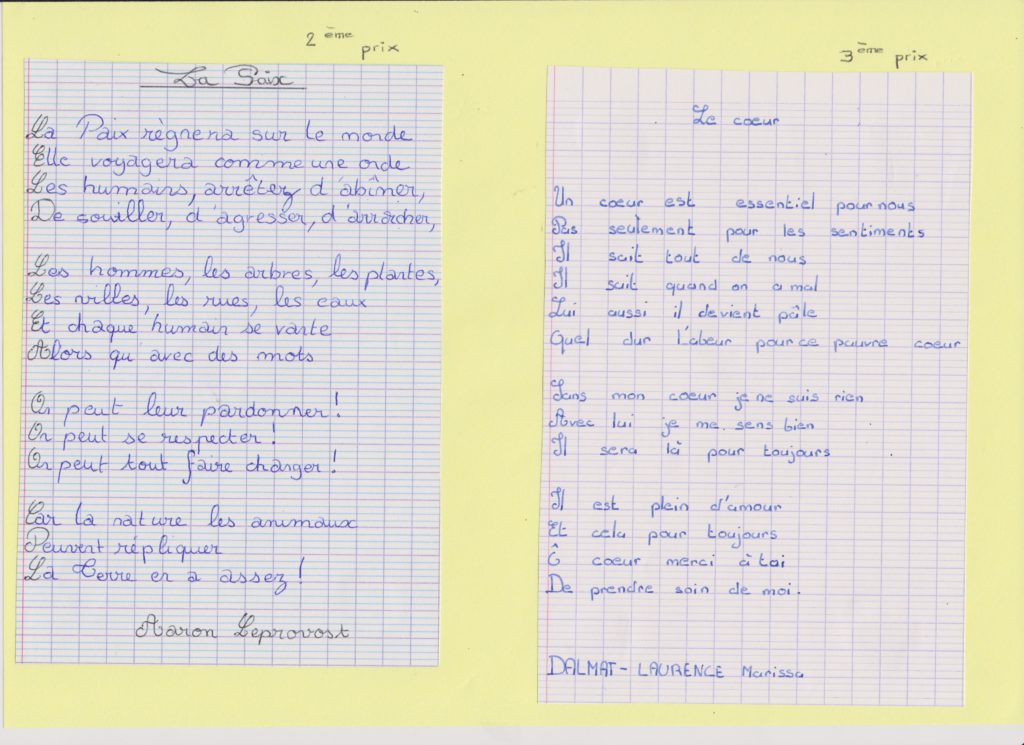 2ème prix
La Paix
La Paix règnera sur le monde
Elle voyagera comme une onde
Les humains, arrêtez d'abîmer,
De souiller, d'agresser, d'arracher,
Les hommes, les arbres, les plantes,
Les villes, les rues, les eaux
Et chaque humain se vante
Alors qu'avec des mots
On peut leur pardonner !
On peut se respecter !
On peut tout faire changer !
Car la nature les animaux
Peuvent répliquer
La Terre en a assez !
Aaron Leprovost
3ème prix
Le coeur
Un coeur est essentiel pour nous
Pas seulement pour les sentiments
Il sait tout de nous
Il sait quand on a mal
Lui aussi il devient pâle
Quel dur labeur pour ce pauvre coeur
Sans mon coeur je ne suis rien
Avec lui je me sens bien
Il sera là pour toujours
Il est plein d'amour
Et cela pour toujours
Ô coeur merci à toi
De prendre soin de moi.
DALMAT-LAURENCE Marissa